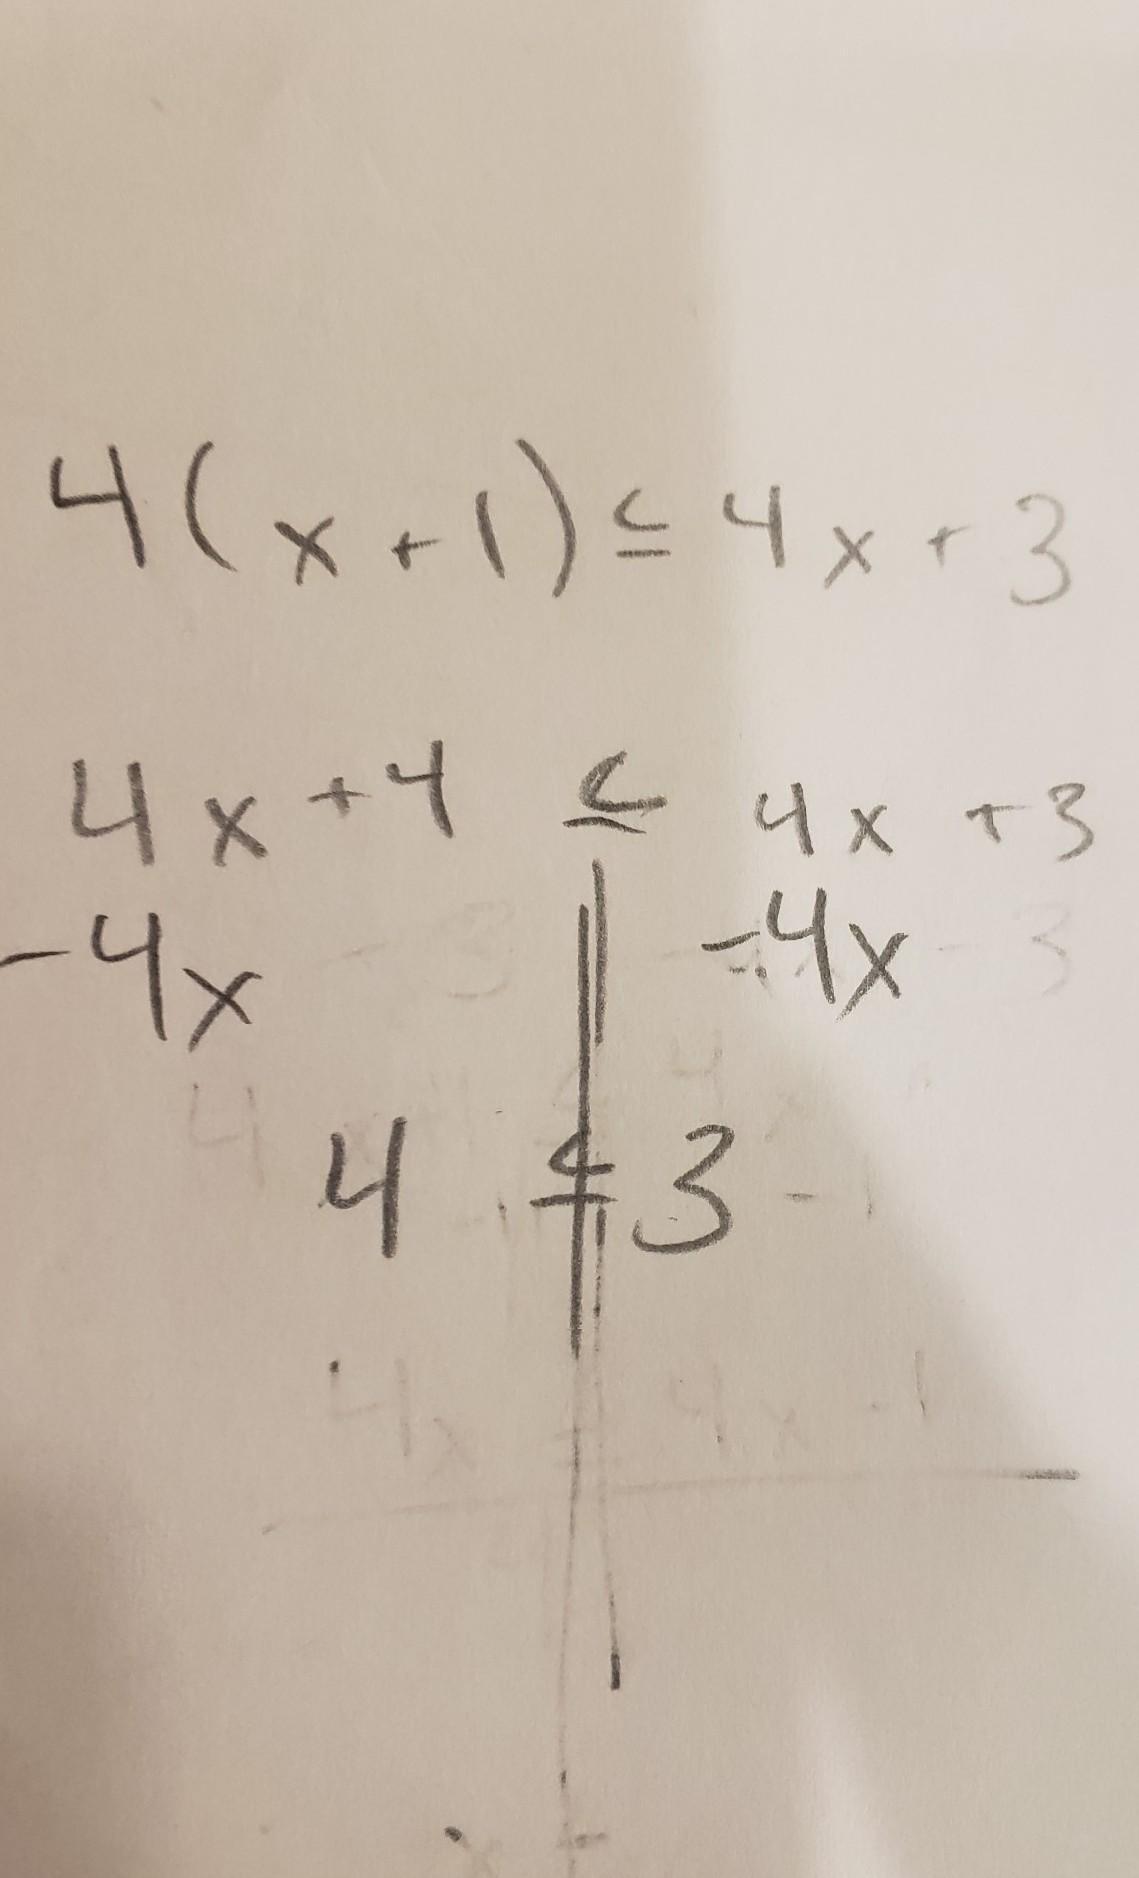 4(x+1) ≤ 4x+3
4x+4 ≤ 4x+3
-4x -4x
4 ≤ 3